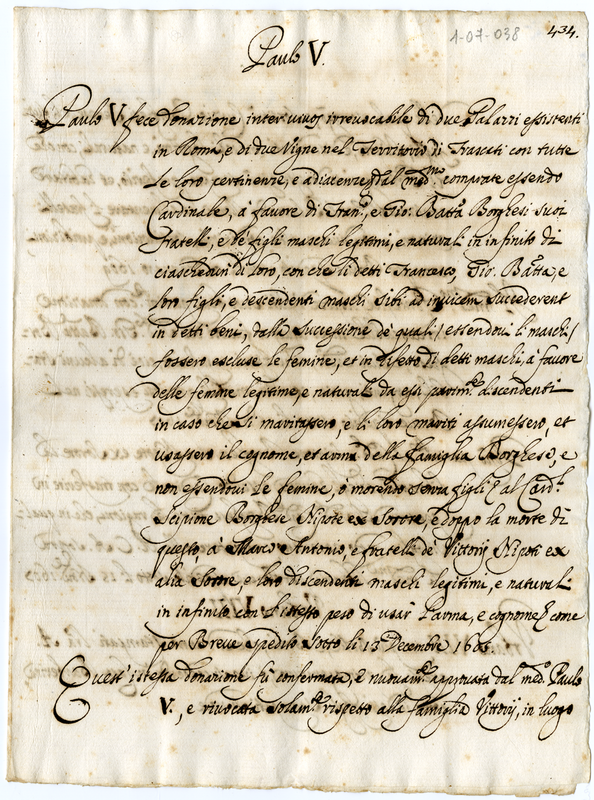 1-07-038
434.
Paulo V.
Paulo V. fece donazione inter vivos irrevocabile di due Palazzi essistenti
in Roma, e di due Vigne nel Territorio di Frascati con tutte
le loro pertinenze, e adiacenze dal med.mo comprate essendo
Cardinale, à favore di Fran.co, e Gio: Batta Borghesi suoi
fratelli, e de figli maschi legitimi, e naturali in infinito di
ciascheduni di loro, con che li detti Francesco, Gio: Batta, e
loro figli, e descendenti maschi sibi ad invicem succederent
in detti beni, dalla successione de quali / essendovi li maschi /
fossero escluse le femine, et in difetto di detti maschi, à favore
delle femine legitime, e naturali da essi parim.te discendenti
in caso che si maritassero, e li loro mariti assumessero, et
usassero il cognome, et arma della famiglia Borghese, e
non essendovi le femine, ò morendo senza figli al Card.l
Scipione Borghese Nipote ex Sorore, e doppo la morte di
questo, à Marco Antonio, e fratelli de Vittorij Nipoti ex
alia Sorore, e loro discendenti maschi legitimi, e naturali
in infinito con l'istesso peso di usar l'arma, e cognome come
per Breve spedito sotto li 13 Decembre
Quest'istessa donazione fù confermata, e nuovam.te approvata dal med.o Paulo
V., e rivocata solam.te rispetto alla famiglia Vittorij, in luogo